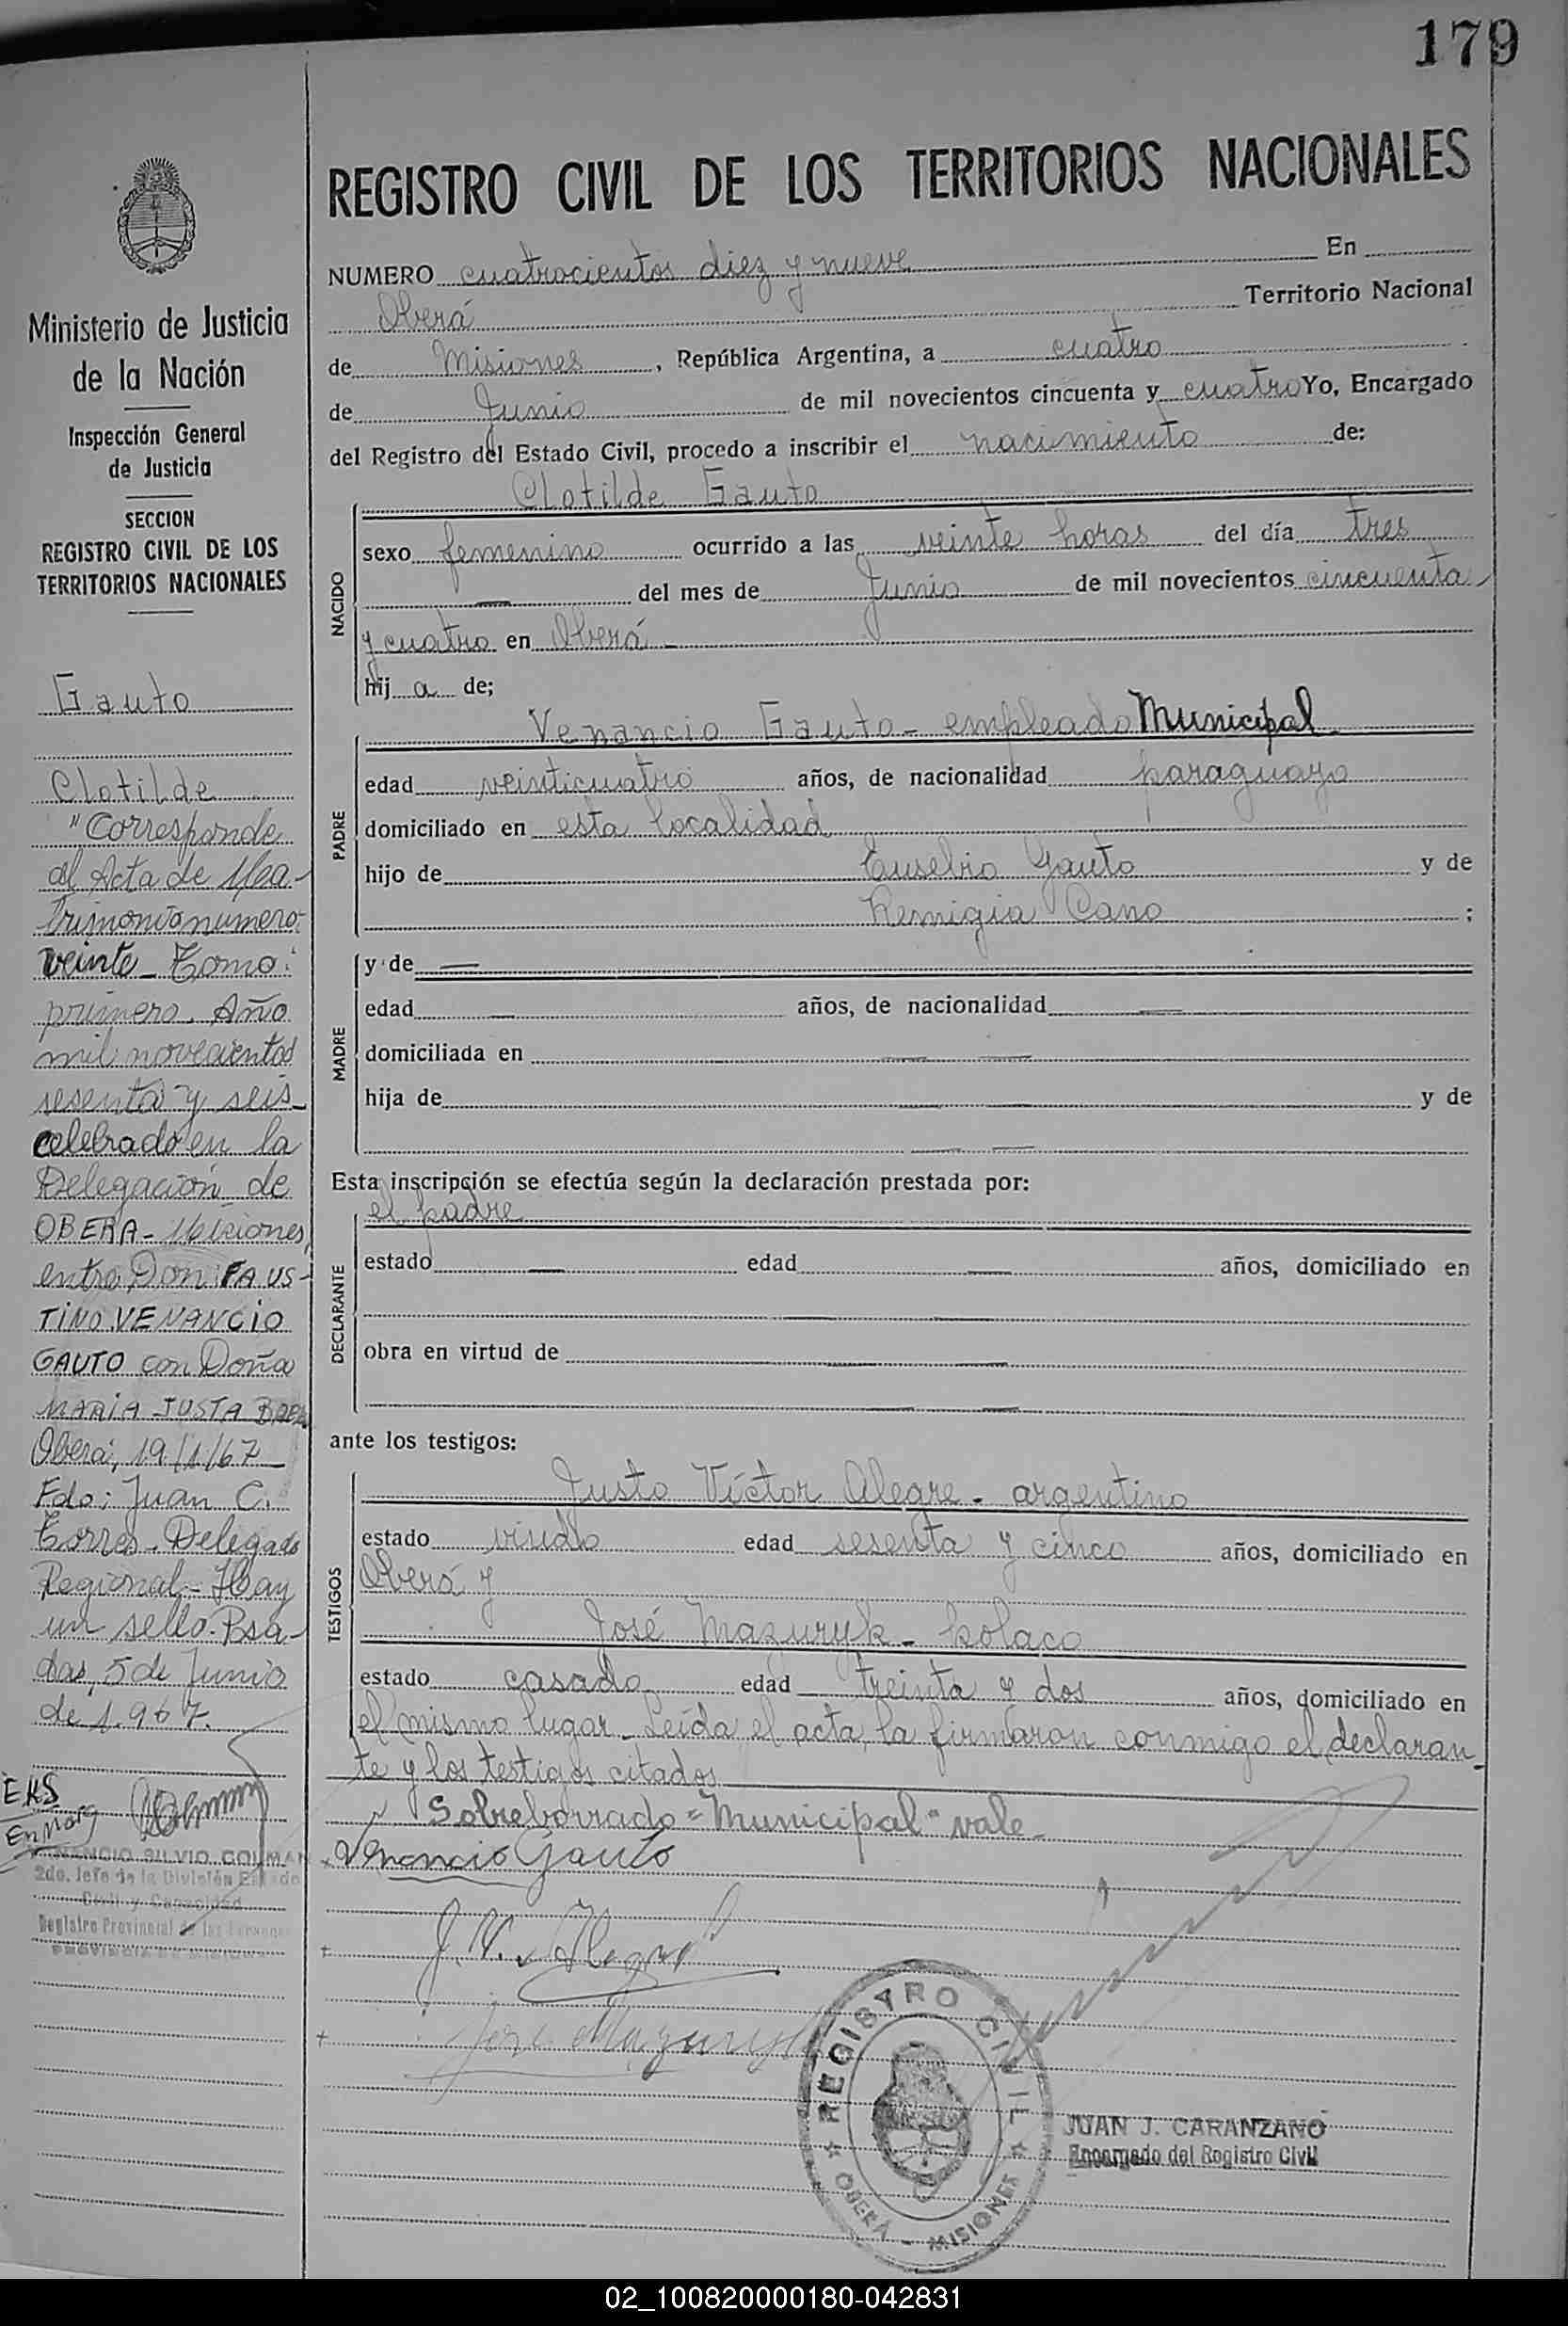 179
REGISTRO CIVIL DE LOS TERRITORIOS NACIONALES
NUMERO cuatrocientos diez y nueve En
Oberá Territorio Nacional
de Misiones, República Argentina, a cuatro
de Junio de mil novecientos cincuenta y cuatro Yo, Encargado
del Registro del Estado Civil, procedo a inscribir el nacimiento de:
Clotilde Gauto
NACIDO
sexo femenino ocurrido a las veinte horas del día tres
— del mes de Junio de mil novecientos cincuenta
y cuatro en Oberá —
hij a de;
Venancio Gauto - empleado Municipal
PADRE
edad veinticuatro años, de nacionalidad paraguayo
domiciliado en esta localidad
hijo de Eusebio Gauto y de
Remigia Cano ;
MADRE
y de —
edad — años, de nacionalidad —
domiciliada en — —
hija de — — y de
— —
Esta inscripción se efectúa según la declaración prestada por:
el padre
DECLARANTE
estado — edad — años, domiciliado en
—
obra en virtud de — —
— —
ante los testigos:
TESTIGOS
Justo Víctor Alegre - argentino
estado viudo edad sesenta y cinco años, domiciliado en
Oberá y
José Mazuryk - polaco
estado casado edad treinta y dos años, domiciliado en
el mismo lugar - Leída el acta, la firmaron conmigo el declaran-
te y los testigos citados
Sobreborrado = "Municipal" vale -
Venancio Gauto
J. V. Alegre
José Mazuryk
REGISTRO CIVIL
OBERÁ - MISIONES
JUAN J. CARANZANO
Encargado del Registro Civil
Ministerio de Justicia
de la Nación
Inspección General
de Justicia
SECCION
REGISTRO CIVIL DE LOS
TERRITORIOS NACIONALES
Gauto
Clotilde
"Corresponde
al Acta de Ma-
trimonio numero
veinte - Tomo:
primero. Año
mil novecientos
sesenta y seis -
celebrado en la
Delegación de
OBERA - Misiones,
entre Don: FAUS-
TINO VENANCIO
GAUTO con Doña
MARIA JUSTA BAEZ
Oberá, 19/1/67 -
Fdo: Juan C.
Torres - Delegado
Regional - Hay
un sello - Posa-
das, 5 de Junio
de 1.967.
EHS
En Marg
VENANCIO SILVIO COLMAN
2do. Jefe de la División Estado
Civil y Capacidad
Registro Provincial de las Personas
PROVINCIA DE MISIONES
02_100820000180-042831